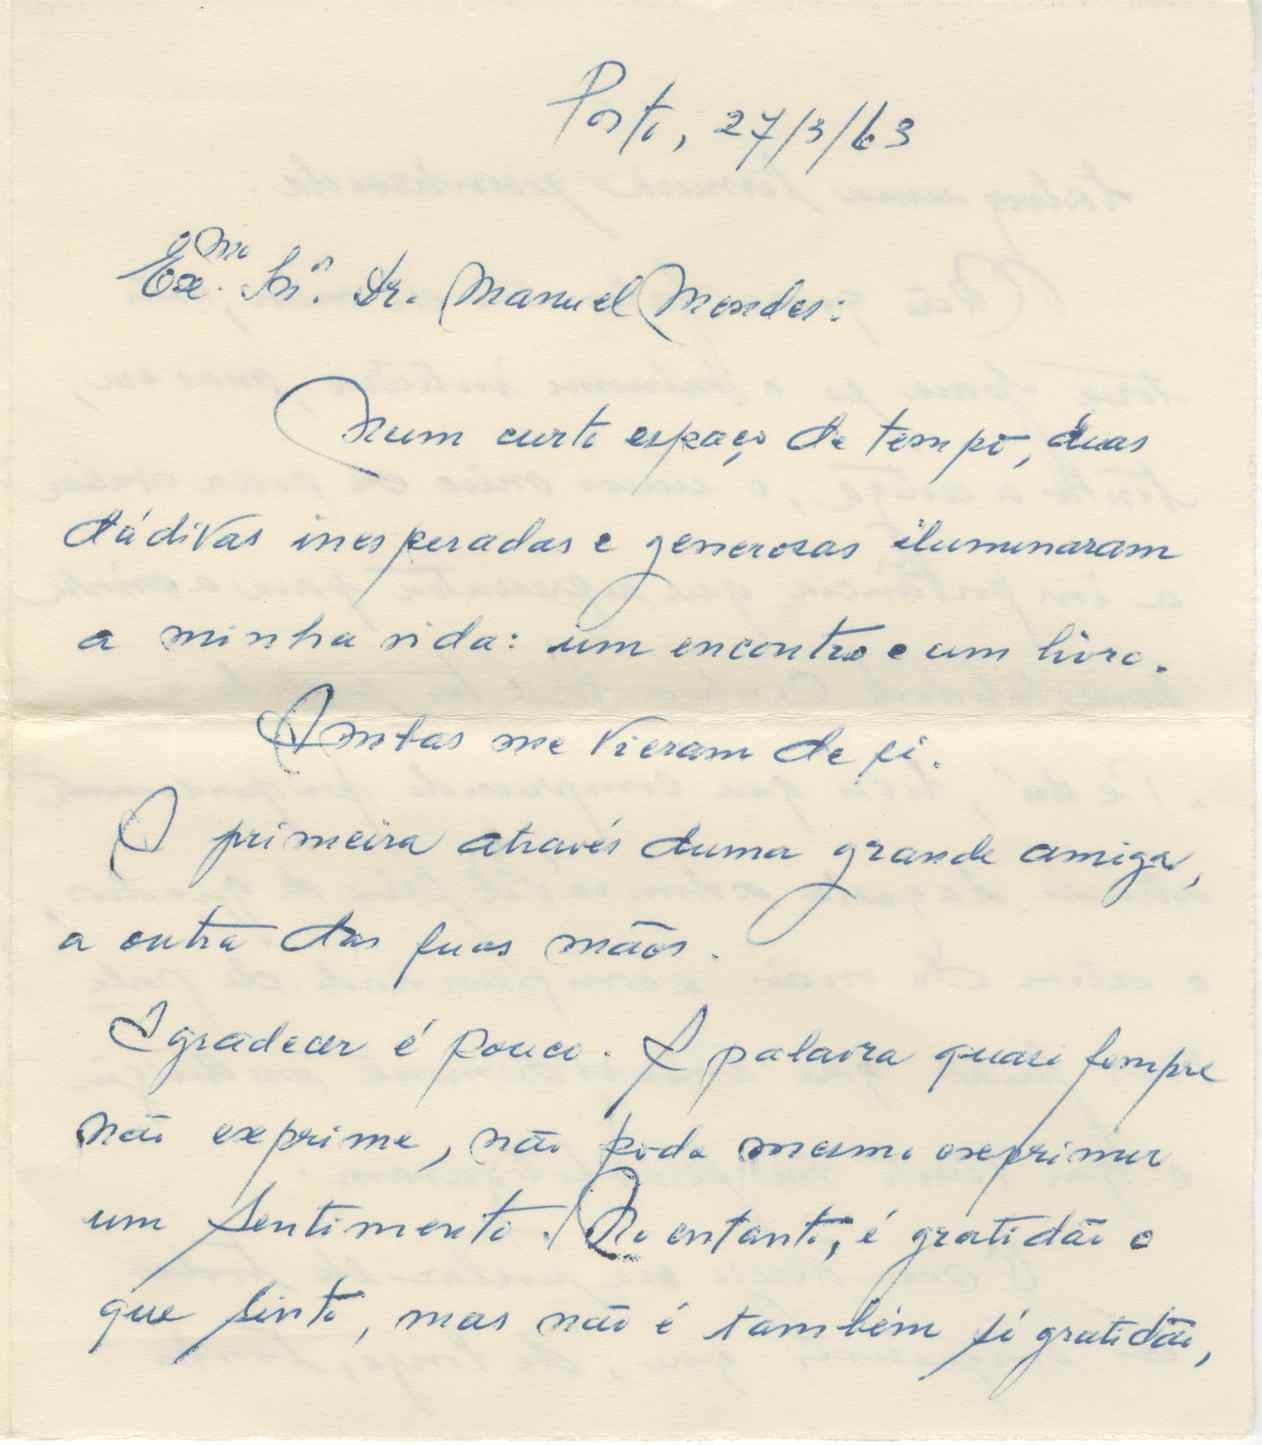 Porto, 27/3/63
Exmo. Snr. Dr. Manuel Mendes:
Num curto espaço de tempo, duas
dádivas inesperadas e generosas iluminaram
a minha vida: um encontro e um livro.
Ambas me vieram de si.
A primeira através duma grande amiga,
a outra das suas mãos.
Agradecer é pouco. A palavra quasi sempre
não exprime, não pode mesmo exprimir
um sentimento. No entanto, é gratidão o
que sinto, mas não é também só gratidão,